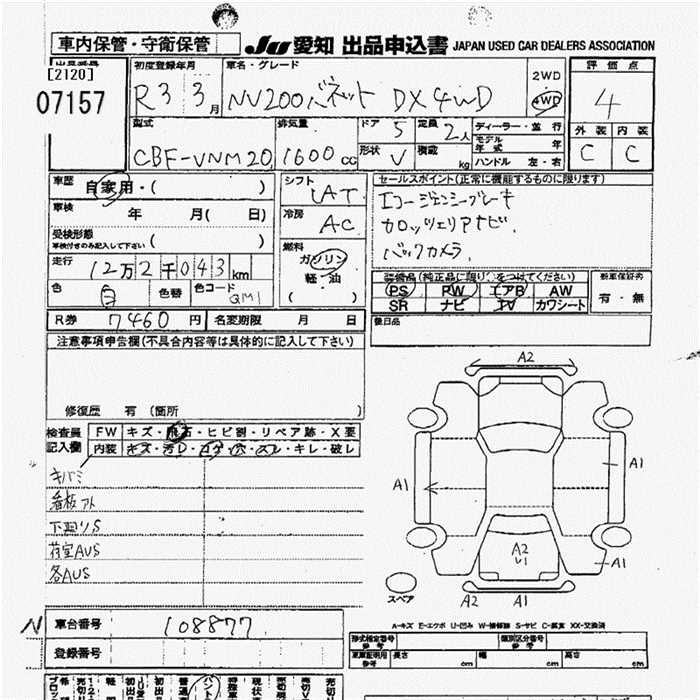 車内保管・守衛保管
JU 愛知 出品申込書 JAPAN USED CAR DEALERS ASSOCIATION
出品番号
[2120]
07157
初度登録年月
R3 3月
車名・グレード
NV200バネット DX 4WD
2WD
4WD
評価点
4
外装 内装
C C
型式
CBF-VNM20
排気量
1600cc
ドア 5
定員 2人
形状 V
積載 kg
ディーラー・並行
モデル年式 年
ハンドル 左・右
車歴 自家用・( )
車検 年 月( 日)
受検形態
車検付きのみ記入して下さい ( )
走行 12万2千043km
色 白 色替 色コード QM1
シフト
IAT
冷房
AC
燃料
ガソリン
軽・油
( )
セールスポイント(正常に機能するものに限ります)
エコージェンシーブレーキ
カロッツェリアナビ.
バックカメラ.
装備品(純正品に限り○をつけてください)
PS PW エアB AW
SR ナビ TV カワシート
新車保証書
有・無
後日品
R券 7460円 名変期限 月 日
注意事項申告欄(不具合内容等は具体的に記入して下さい)
修復歴 有 (箇所 )
検査員
記入欄
FW キズ・飛石・ヒビ割・リペア跡・X要
内装 キズ・汚レ・コゲ・穴・スレ・キレ・破レ
キバミ
看板アト
下回リS
荷室AUS
各AUS
A2
A1
A1
A2
A1
A2 A1
スペア
A-キズ E-エクボ U-凹み W-補修跡 S-サビ C-腐食 XX-交換済
N 車台番号 108877
登録番号
型式指定番号 参考
類別区分番号 参考
車庫証明用 参考 長さ cm 幅 cm 高さ cm